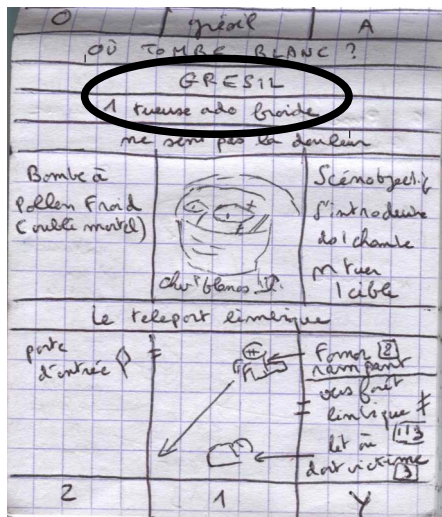 O grésil A
OÙ TOMBE BLANC ?
GRESIL
1 tueuse ado froide
ne sent pas la douleur
Bombe à
Pollen Froid
(oubli mortel)
Scénobjectif
s'introduire
ds 1 chambre
tuer
1 cible
chvx blancs
Le teleport limbique
porte
d'entrée
Fomor 2
rampant
vers forêt
limbique
lit où
dort victime
2 1 Y